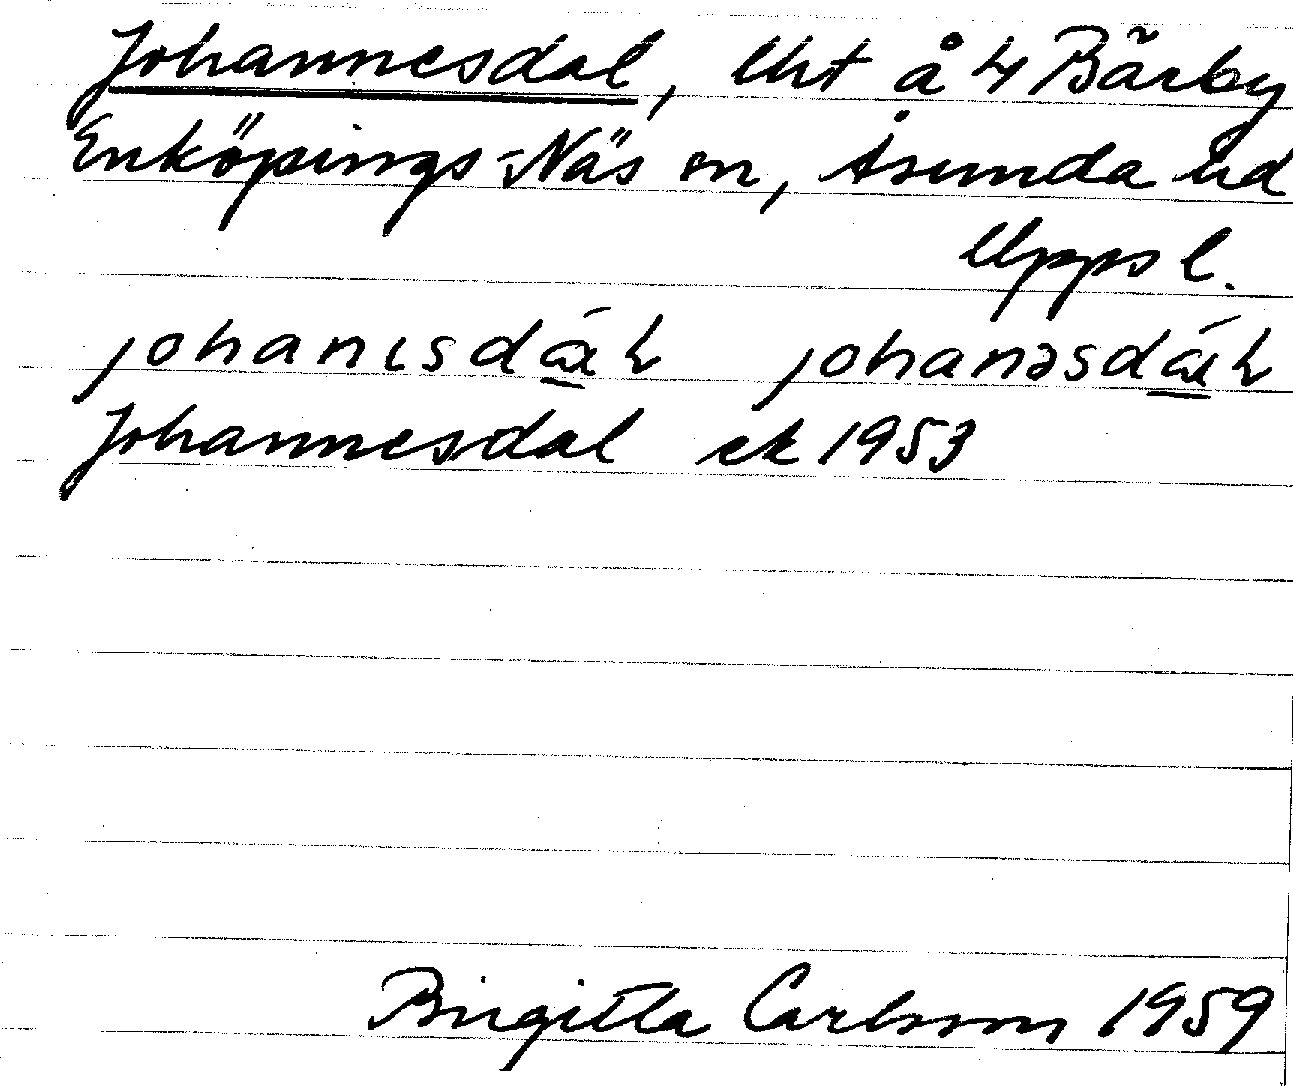 Johannesdal, lht å 4 Bärby
Enköpings-Näs sn, Åsunda hd
Uppsl.
johanısdáɫ johanəsdáɫ
Johannesdal ek 1953
Birgitta Carlsson 1959